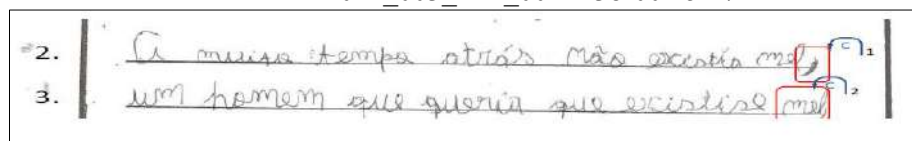 2. A muito tempo atrás não excistia mel, C 1
3. um homem que queria que excistise mel C 2